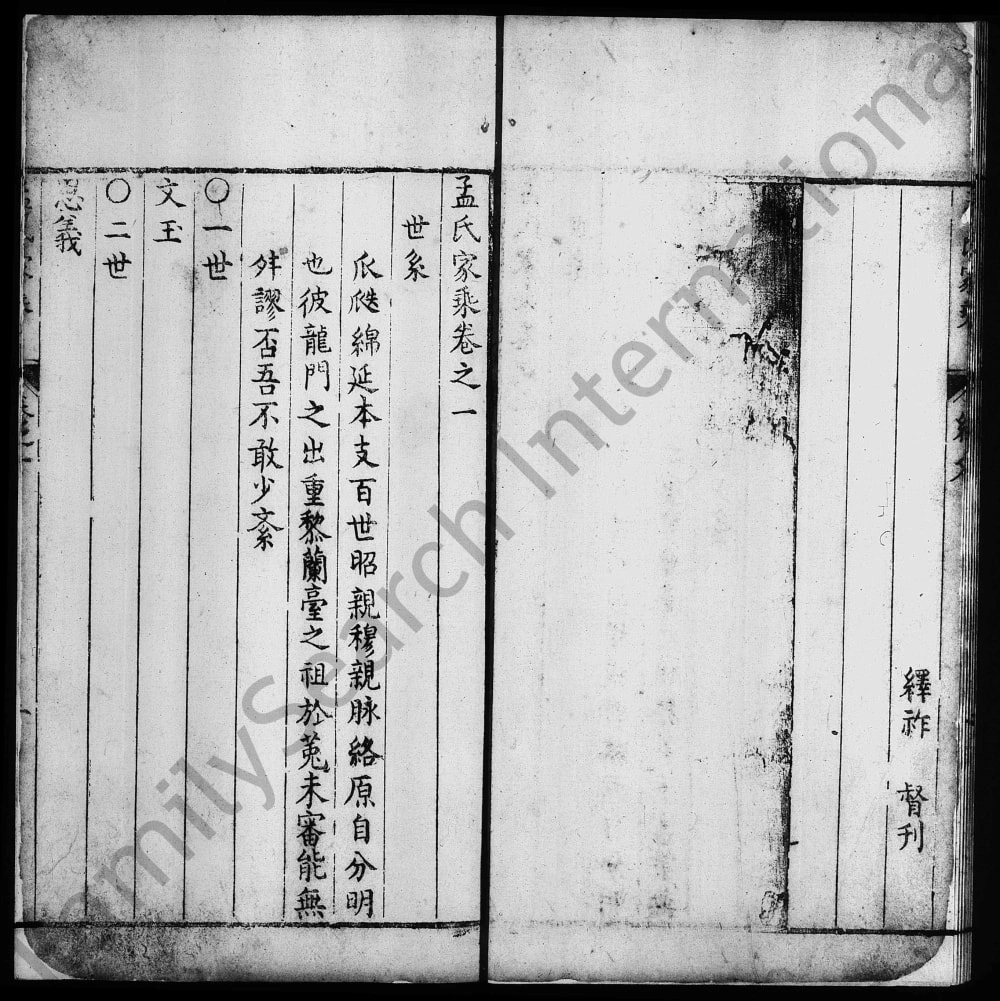 繹祚 督刋
孟氏家乘卷之一
世系
瓜瓞綿延本支百世昭親穆親脉絡原自分明
也彼龍門之出重黎蘭臺之祖於菟未審能無
舛謬否吾不敢少紊
〇一世
文王
〇二世
思義
FamilySearch International